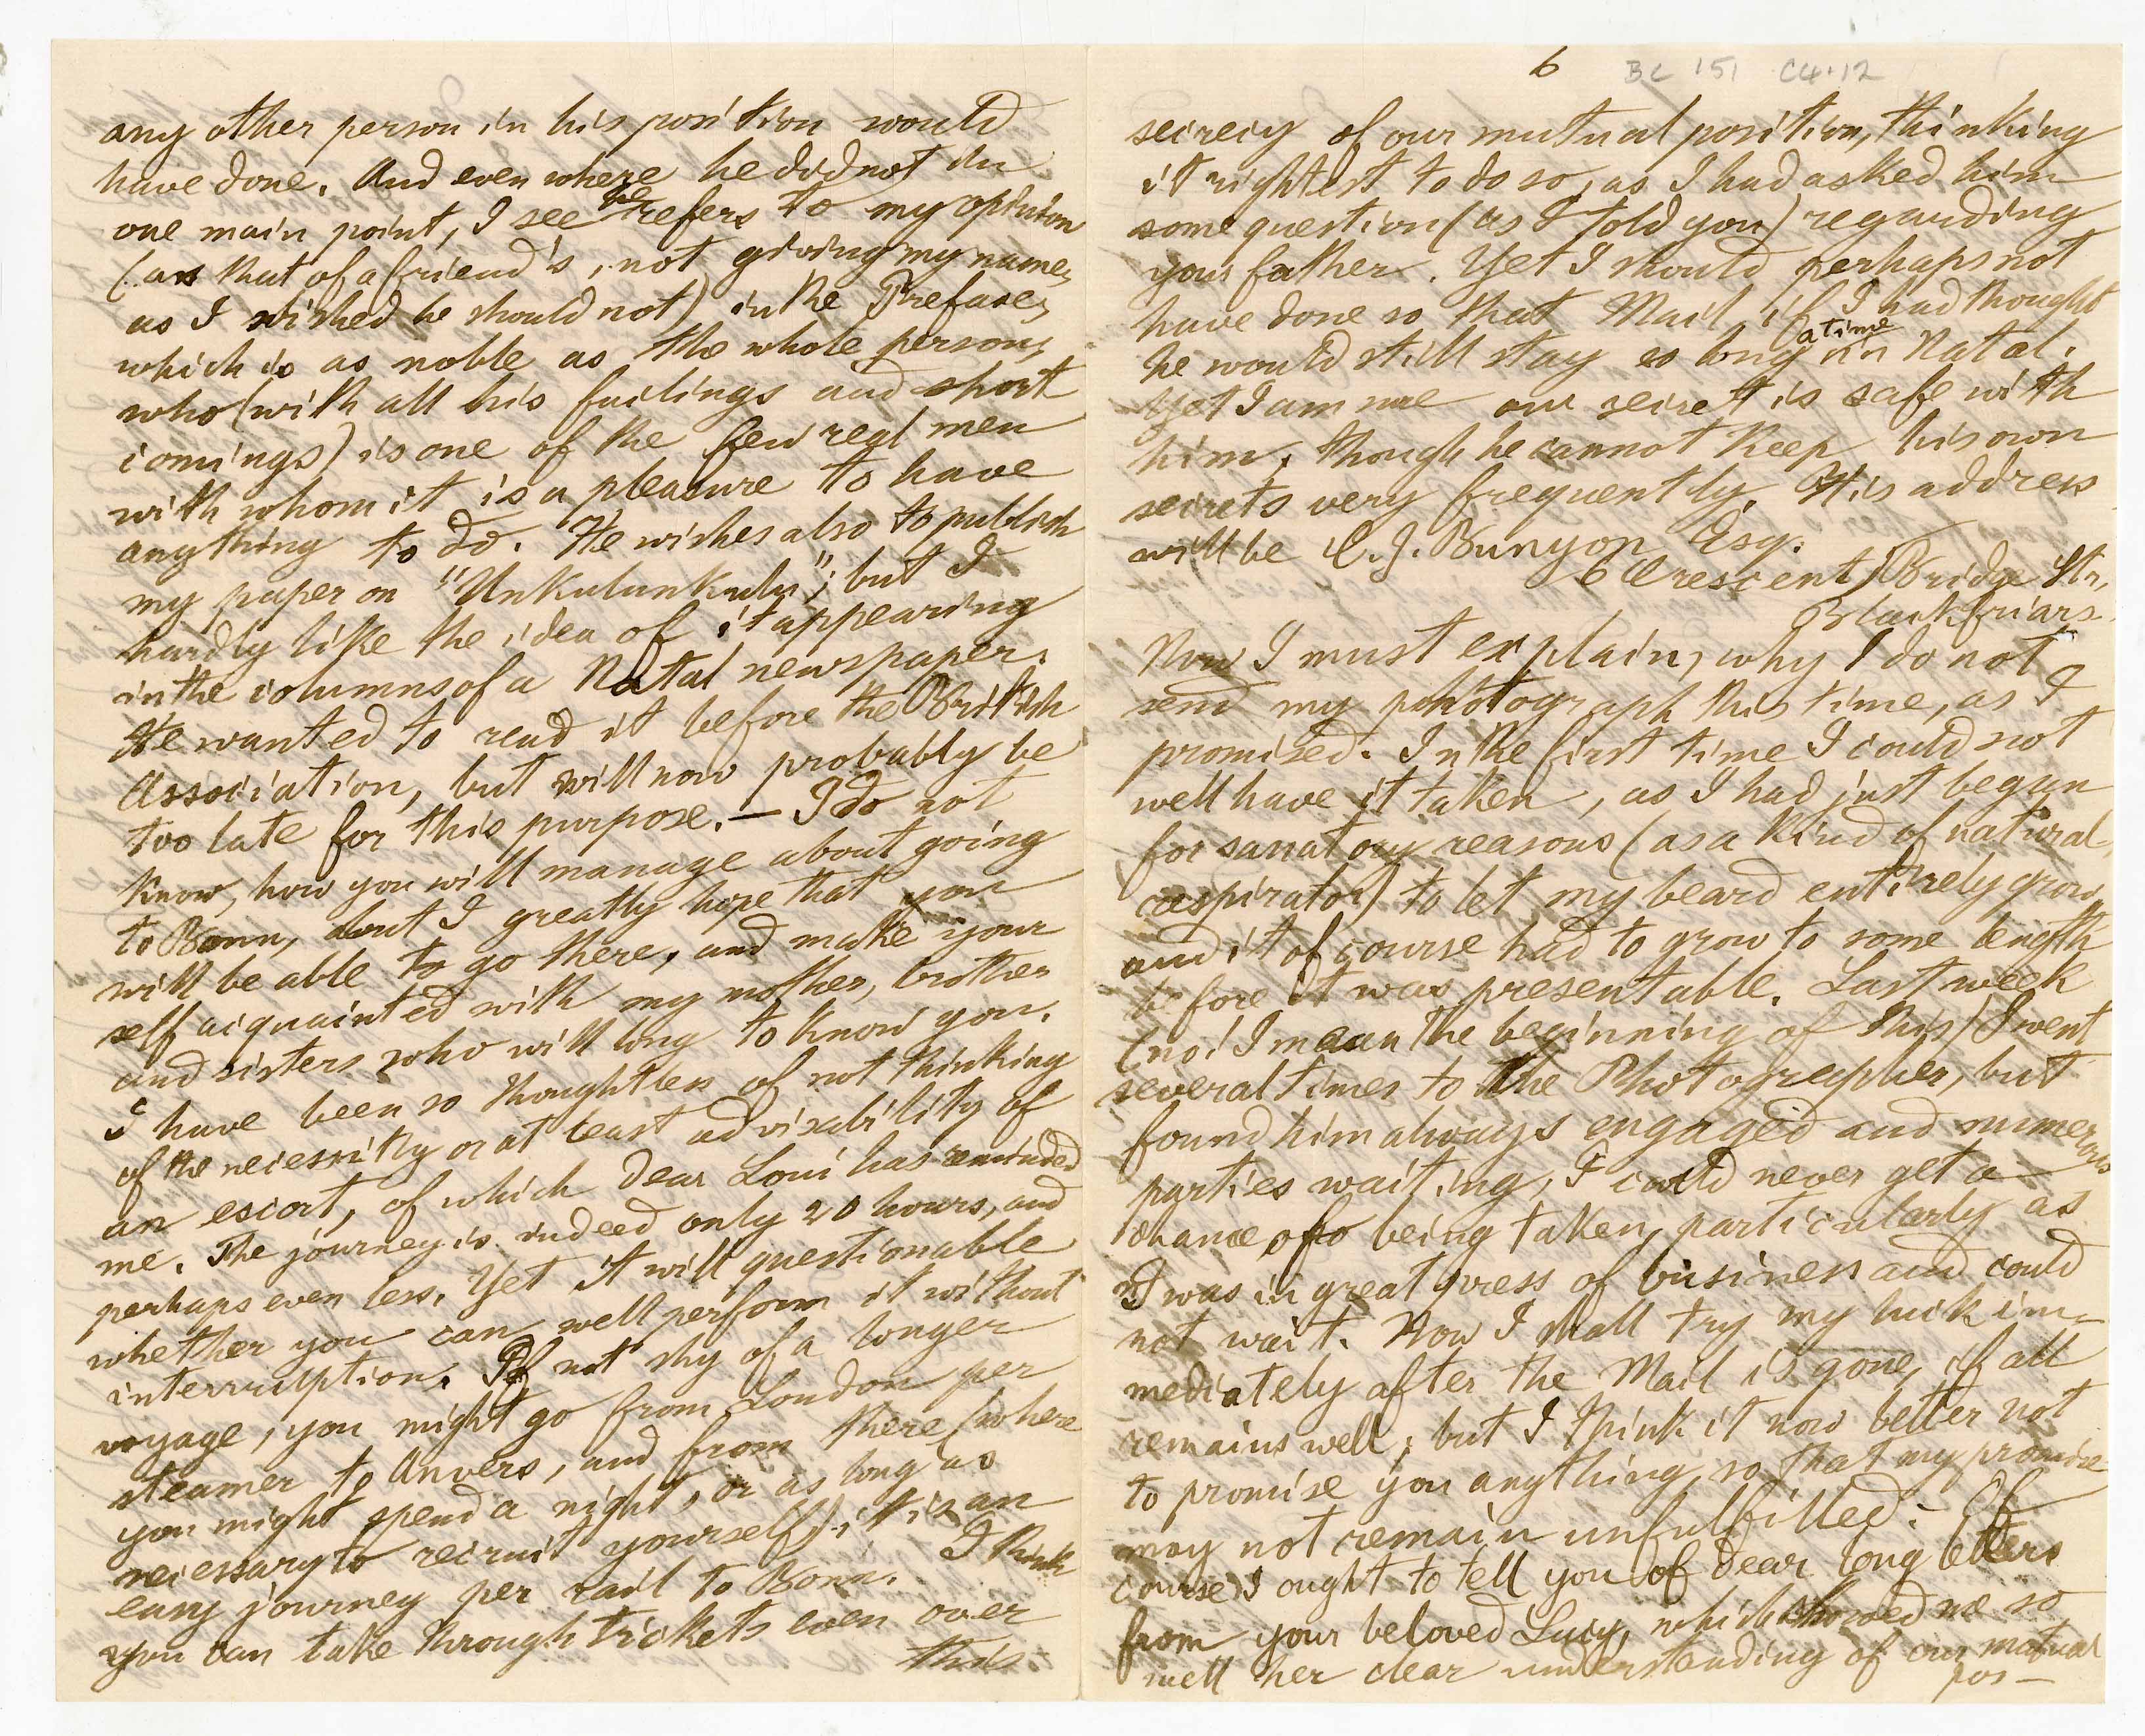 any other person in his position would
have done. And even where he did not in
one main point, I see he refers to my opinion
(as that of a friend's, not giving my name,
as I wished he should not) in the Preface,
which is as noble as the whole person,
who (with all his failings and short
comings) is one of the few real men
with whom it is a pleasure to have
anything to do. He wishes also to publish
my paper on "Unkulunkulu"; but I
hardly like the idea of it appearing
in the columns of a Natal newspaper.
He wanted to read it before the British
Association, but will now probably be
too late for this purpose. — I do not
know, how you will manage about going
to Bonn, but I greatly hope that you
will be able to go there, and make your
self acquainted with my mother, brother
and sisters who will long to know you.
I have been so thoughtless of not thinking
of the necessity or at least advisability of
an escort, of which dear Loui has reminded
me. The journey is indeed only 20 hours, and
perhaps even less. Yet it will questionable
whether you can well perform it without
interruption. If not shy of a longer
voyage, you might go from London per
steamer to Anvers, and from there (where
you might spend a night, or as long as
necessary to recruit yourself) it is an
easy journey per rail to Bonn. I think
you can take through tickets even over
this
6 BC 151 C4.12
secrecy of our mutual position, thinking
it rightest to do so, as I had asked him
some question (as I told you) regarding
your father. Yet I should perhaps not
have done so that Mail, if I had thought
he would still stay so long a time in Natal.
Yet I am sure our secret is safe with
him, though he cannot keep his own
secrets very frequently. His address
will be C. J. Bunyon Esq.
6 Crescent, Bridge Str,
Blackfriars.
Now I must explain, why I do not
send my photograph this time, as I
promised. In the first time I could not
well have it taken, as I had just begun
for sanatory reasons (as a kind of natural
respirator) to let my beard entirely grow,
and it of course had to grow to some length
before it was presentable. Last week
(no! I mean the beginning of this) I went
several times to the Photographer, but
found him always engaged and numerous
parties waiting, I could never get a
chance of being taken, particularly as
I was in great press of business and could
not wait. Now I shall try my luck im-
mediately after the Mail is gone, if all
remains well; but I think it now better not
to promise you anything, so that my promise
may not remain unfulfilled. - Of
course I ought to tell you of dear long letters
from your beloved Lucy, which showed me so
well her clear understanding of our mutual
pos-